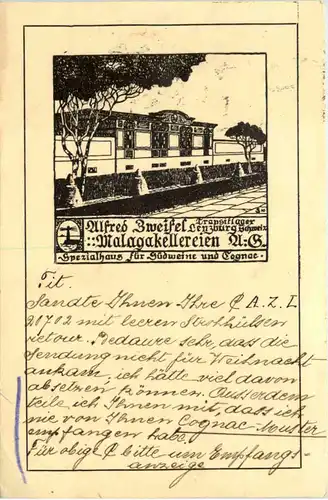 Alfred Zweifel Transitlager
Lenzburg Schweiz
::Malagakellereien A:G.
Spezialhaus für Südweine und Cognac.
Tit.
Sandte Ihnen Ihre A. Z. L.
20702 mit leeren Strohhülsen
retour. Bedaure sehr, dass die
Sendung nicht für Weihnacht
ankam, ich hätte viel davon
absetzen können. Ausserdem
teile ich Ihnen mit, dass ich
nie von Ihnen Cognac-Muster
empfangen habe.
Für obige bitte um Empfangs-
anzeige